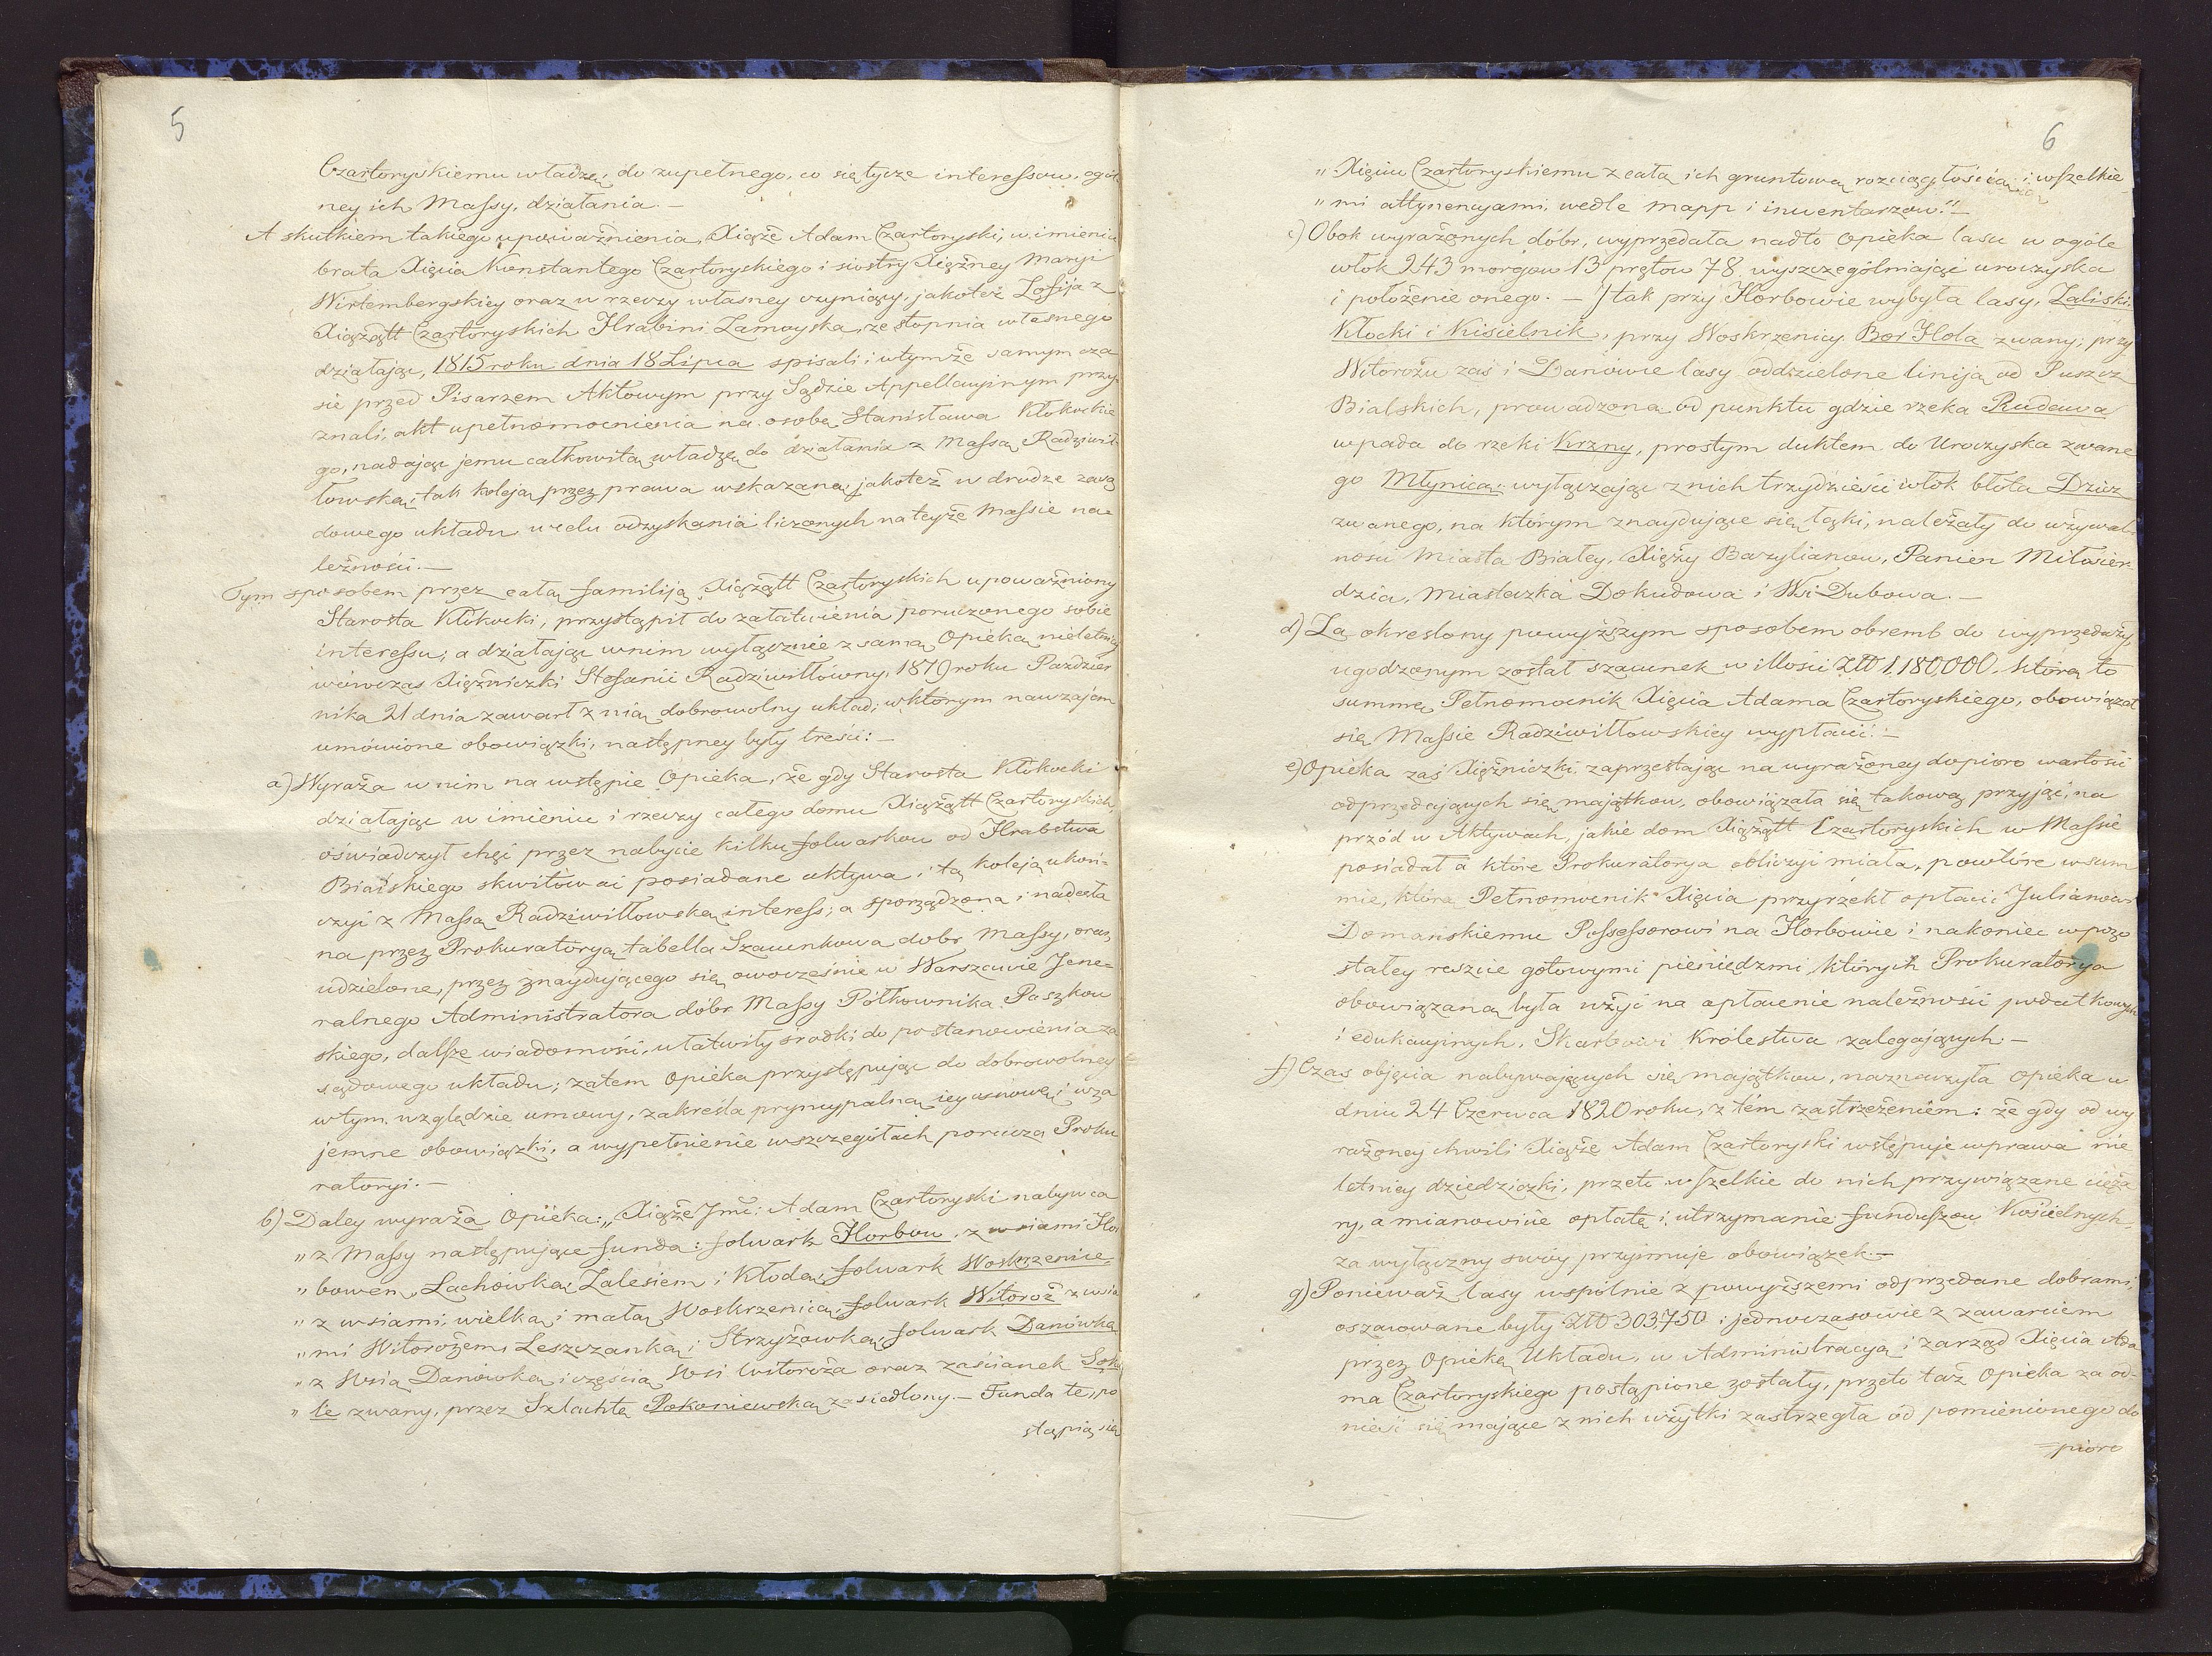 5
Czartoryskiemu władzę, do zupełnego, co się tycze interessow, ogól
ney ich Massy, działania. —
A skutkiem takiego upoważnienia, Xiąże Adam Czartoryski, w imieniu
brata Xięcia Konstantego Czartoryskiego i siostry Xiężney Maryi
Wirtembergskiey oraz w rzeczy własney czyniący, jakoteż Zofija z
Xiążątt Czartoryskich Hrabini Zamoyska, ze stopnia własnego
działając, 1815 roku dnia 18 Lipca spisali i w tymże samym cza
sie przed Pisarzem Aktowym przy Sądzie Appellacyinym przy
znali, akt upełnomocnienia na osobę Stanisława Kłokockie
go, nadając jemu całkowitą władzę do działania z Massą Radziwił
łowską, tak koleją przez prawa wskazaną, jakoteż w drodze zawa
dowego układu w celu odzyskania liczonych na teyże Massie na=
leżności. —
Tym sposobem przez całą familiją Xiążątt Czartoryskich upoważniony
Starosta Kłokocki, przystąpił do załatwienia poruczonego sobie
interessu; a działając w nim wyłącznie z samą Opieką nieletniey
wówczas Xiężniczki Stefanii Radziwiłłówny, 1819 roku Paździer
nika 21 dnia zawarł z nią dobrowolny układ; w którym nawzajem
umówione obowiązki, następney były treści: —
a) Wyraża w nim na wstępie Opieka, że gdy Starosta Kłokocki
działając w imieniu i rzeczy całego domu Xiążątt Czartoryskich,
oświadczył chęć przez nabycie kilku folwarkow od Hrabstwa
Bialskiego skwitować posiadane aktywa i tą koleją ukoń=
czyć z Massą Radziwiłłowską interess; a sporządzona i nadesła
na przez Prokuratoryą tabella Szacunkowa dobr Massy, oraz
udzielone, przez znaydującego się owocześnie w Warszawie Jene=
ralnego Administratora dóbr Massy Półkownika Paszkow
skiego, dalsze wiadomości, ułatwiły środki do postanowienia za
sądowego układu; zatem Opieka przystępując do dobrowolney
w tym względzie umowy, zakreśla pryncypalną iey osnowę i wza
jemne obowiązki, a wypełnienie w szczegółach porucza Proku
ratoryi. —
b) Daley wyraża Opieka: „Xiąże Jmć: Adam Czartoryski nabywca
„ z Massy następujące funda: folwark Horbow, z wsiami Hor
„ bowem, Lachówką, Zalesiem i Kłodą; folwark Woskrzenice
„ z wsiami, wielką i małą Woskrzenicą, folwark Witoroż z wsia
„ mi Witorożem, Leszczanką i Strzyżowką; folwark Danówka
„ z Wsią Danówką i częścią Wsi Witoroża oraz zaścianek Soku
„ le zwany, przez Szlachtę Pokoniewską zasiedlony. — Funda te, po
stąpią się
6
„ Xięciu Czartoryskiemu z całą ich gruntową rozciągłością i wszelkie
„ mi attynencyami, wedle mapp i inwentarzow." —
c) Obok wyrażonych dóbr, wyprzedała nadto Opieka lasu w ogóle
włok 243 morgow 13 prętow 78. wyszczególniając uroczyska
i położenie onego. — I tak przy Horbowie wybyła lasy, Zaliski,
Kłocki i Kisielnik, przy Woskrzenicy Bor Hola zwany; przy
Witorożu zaś i Danówie lasy oddzielone liniją od Puszcz
Bialskich, prowadzoną od punktu gdzie rzeka Rudawa
wpada do rzeki Krzny, prostym duktem do Uroczyska zwane
go Młynica; wyłączając z nich trzydzieści włok błota Dziez
zwanego, na którym znaydujące się łąki, należały do używal=
ności Miasta Białey, Xięży Bazylianow, Panien Miłosier=
dzia, Miasteczka Dokudowa i Wsi Dubowa. —
d) Za określony powyższym sposobem obremb do wyprzedaży,
ugodzonym został szacunek w illości Złł 1,180,000. którą to
summę Pełnomocnik Xięcia Adama Czartoryskiego, obowiązał
się Massie Radziwiłłowskiey wypłacić. —
e) Opieka zaś Xiężniczki, zaprzestając na wyrażoney dopioro wartości
odprzedających się majątkow, obowiązała się takową przyjąć, na
przód w Aktywach, jakie dom Xiążątt Czartoryskich w Massie
posiadał a które Prokuratorya obliczyć miała, powtóre w sum
mie, którą Pełnomocnik Xięcia przyrzekł opłacić Julianowi
Domańskiemu Possessorowi na Horbowie i nakoniec w pozo
stałey reszcie gotowymi pieniędzmi, których Prokuratorya
obowiązaną była użyć na opłacenie należności podatkowych
i edukacyinych, Skarbowi Królestwa zalegających. —
f) Czas objęcia nabywających się majątkow, naznaczyła Opieka w
dniu 24 Czerwca 1820 roku, z tém zastrzeżeniem: że gdy od wy
rażoney chwili Xiąże Adam Czartoryski wstępuje w prawa nie
letniey dziedziczki, przeto wszelkie do nich przywiązane cięża
ry, a mianowicie opłatę i utrzymanie funduszow Kościelnych,
za wyłączny swóy przyjmuje obowiązek. —
g) Ponieważ lasy wspólnie z powyższemi odprzedane dobrami,
oszacowane były Złł 303,750 i jednoczasowie z zawarciem
przez Opiekę Układu, w Administracyą i zarząd Xięcia Ada
ma Czartoryskiego postąpione zostały, przeto taż Opieka za od=
nieść się mające z nich użytki zastrzegła od pomienionego do
=pioro